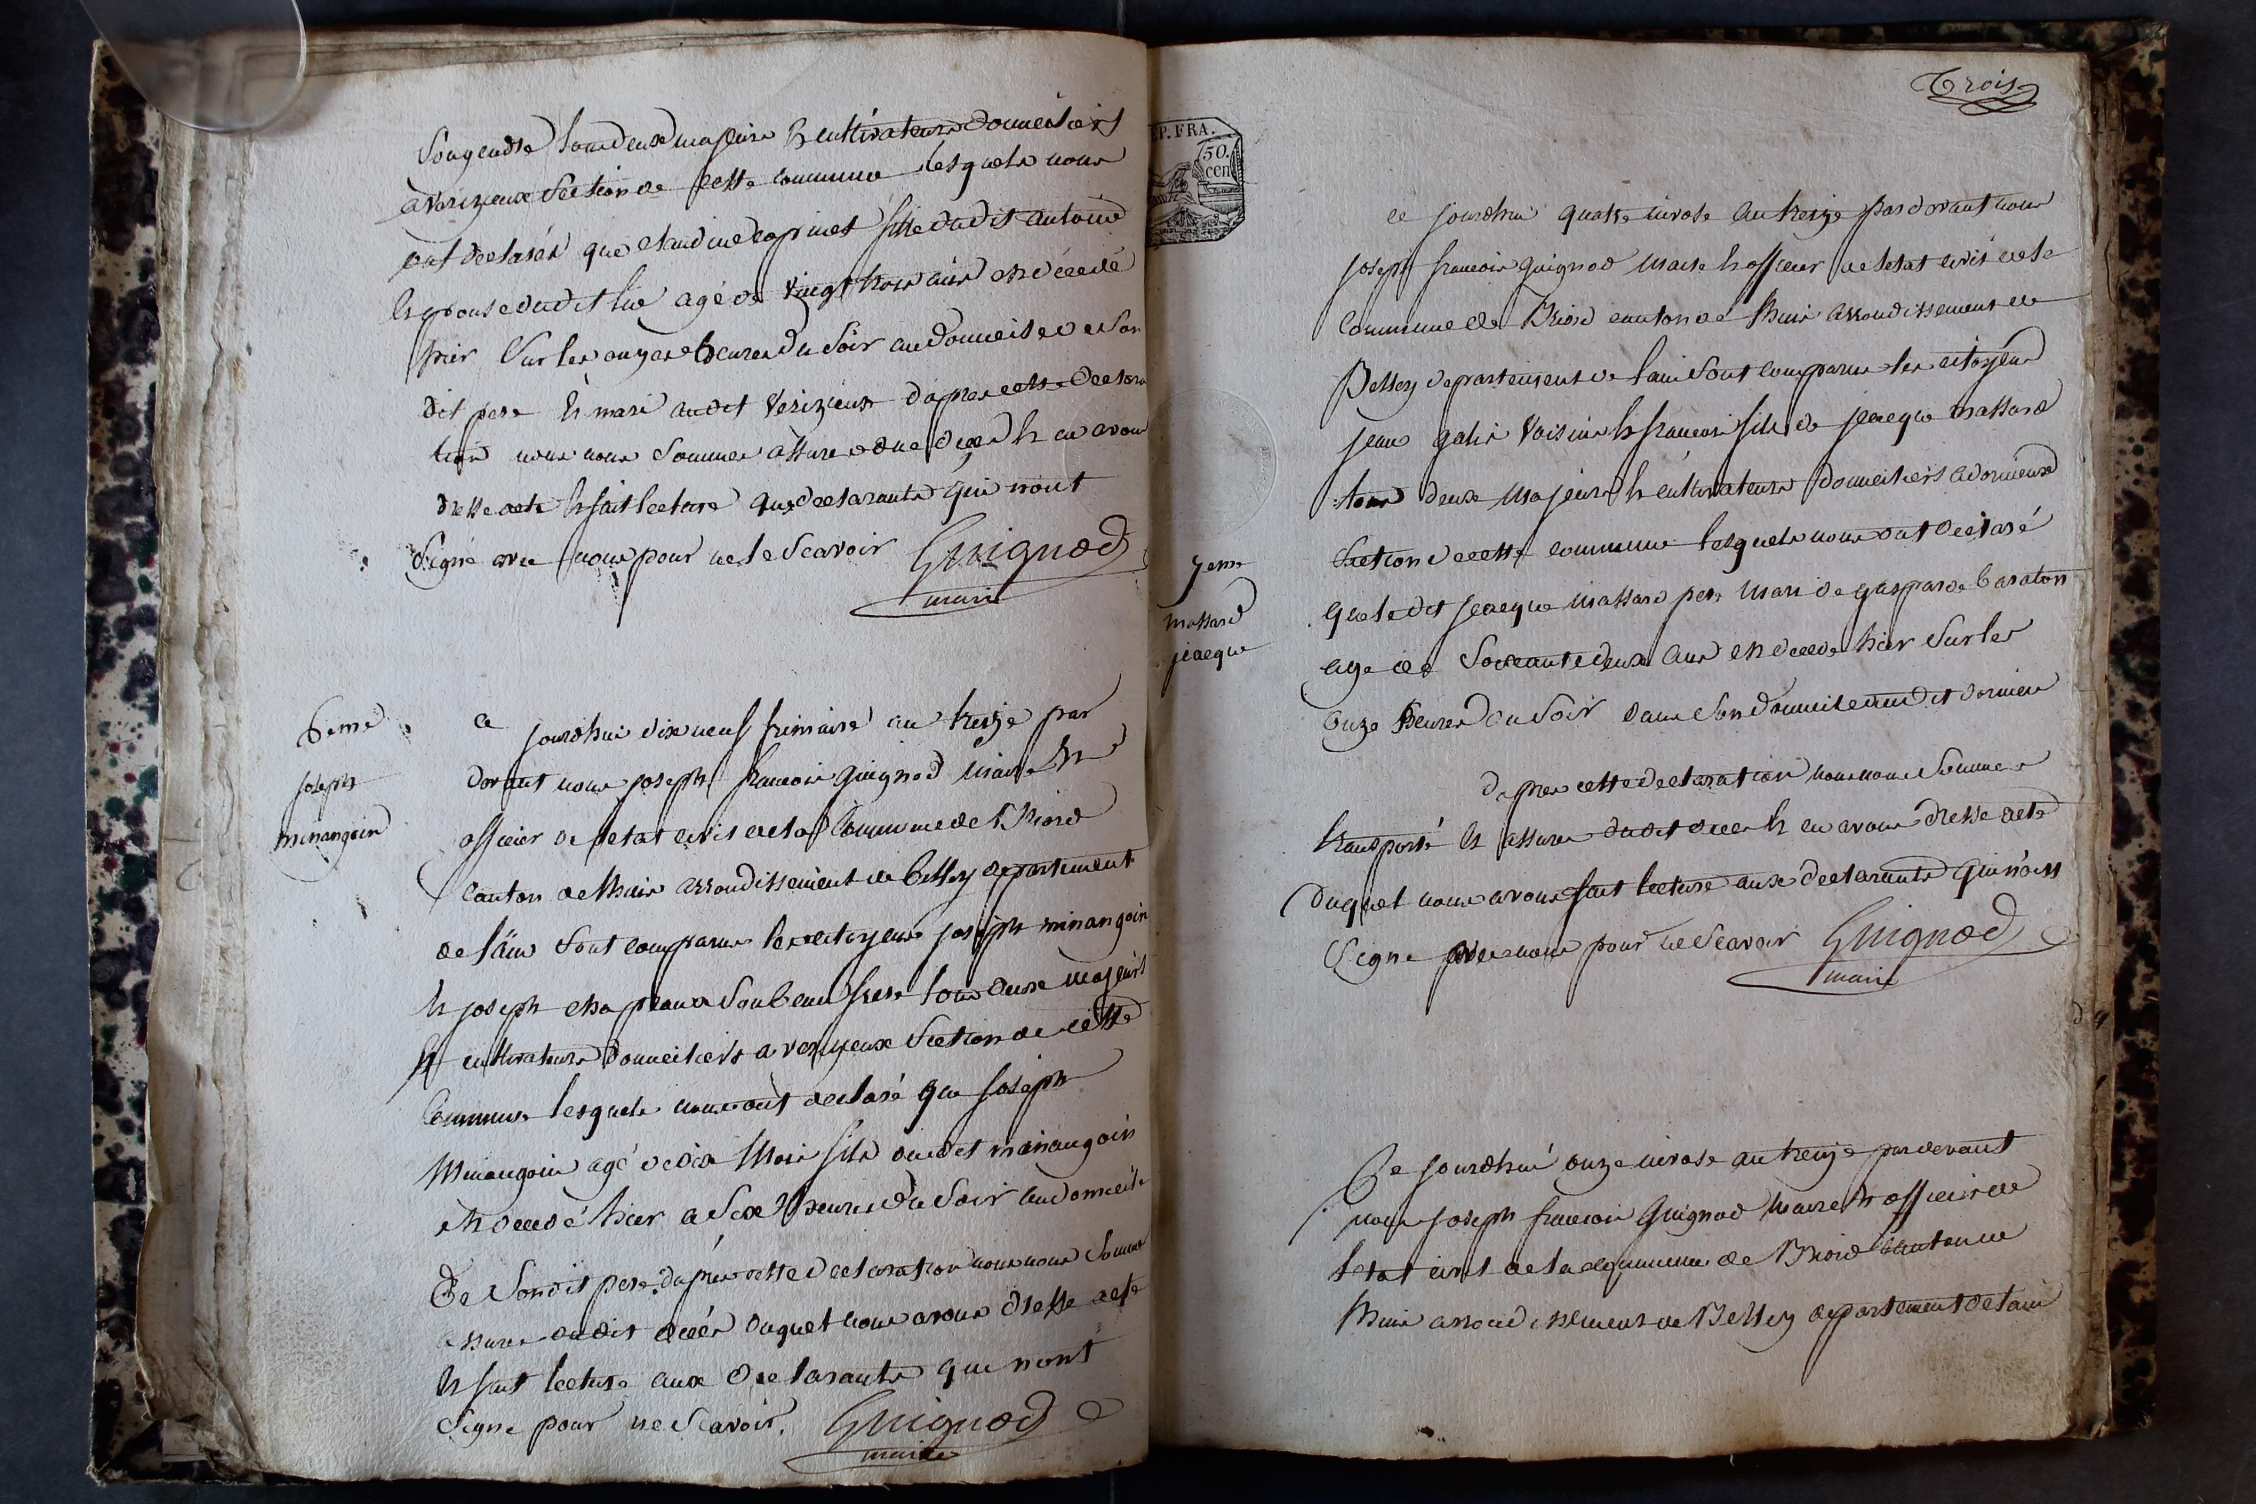 Songendre tous deux majeurs & cultivateurs domeciliers
a verizieux section de cette commune lesquels nous
ont declarés que claudine fille dudit antoine
& epouse dudit agé de vingt trois ans est décedé
hier sur les onzes heures du soir au domeicile de son
dit pere & mari audit verizieux dapres cette declara
tion nous nous sommes assure dudeces & en avons
dresse acte & fait lecture aux declarants qui nont
signé avec nous pour ne le scavoir Guignod
maire
6eme
joseph
minangoin
ce jourdhui dix neuf frimaire an treize par
devant nous joseph francois guignod maire &
officier de letat civil de la commune de Briord
canton de lhuis arrondissement de belley departement
de lain sont comparus les citoyens joseph minangoin
& joseph chapeaux son beau frere tous deux majeurs
& cultivateurs domeciliers a verizieux section de cette
commune lesquels nous ont declaré que joseph
Minangoin agé de dix Mois fils dudit minangoin
est decedé hier a six heures du soir au domicile
de son dit pere. dapres cette declaration nous nous somme
assure dudit décés duquel nous avons dresse acte
& fait lecture aux declarants qui nont
signe pour ne scavoir. Guignod
maire
Trois
EP. FRA.
50.
cen
7eme
massard
jeacque
ce jourdhui quatre nivose an treize pardevant nous
joseph francois guignod maire & officier de letat civil de la
commune de Briord canton de lhuis arrondissement de
Belley departement de lain sont comparus les citoyens
jean galix voisin & francois fils de jeacque massard
tous deux majeurs & cultivateurs domeiciliers a dornieux
section de cette commune lesquels nous ont declaré
que le dit jeacque massard pere mari de gasparde baraton
age de soixante deux ans est decede hier sur les
onze heures du soir dans son domeicile audit dornieux
dapres cette declaration nous nous sommes
transporté & assure dudit deces & en avons dresse acte
duquel nous avons fait lecture aux declarants qui nont
signe avec nous pour ne scavoir Guignod
maire
Ce jourdhui onze nivose an treize pardevant
nous joseph francois Guignod maire & officier de
letat civil de la commune de Briord canton de
lhuis arrondissement de Belley departement de lain